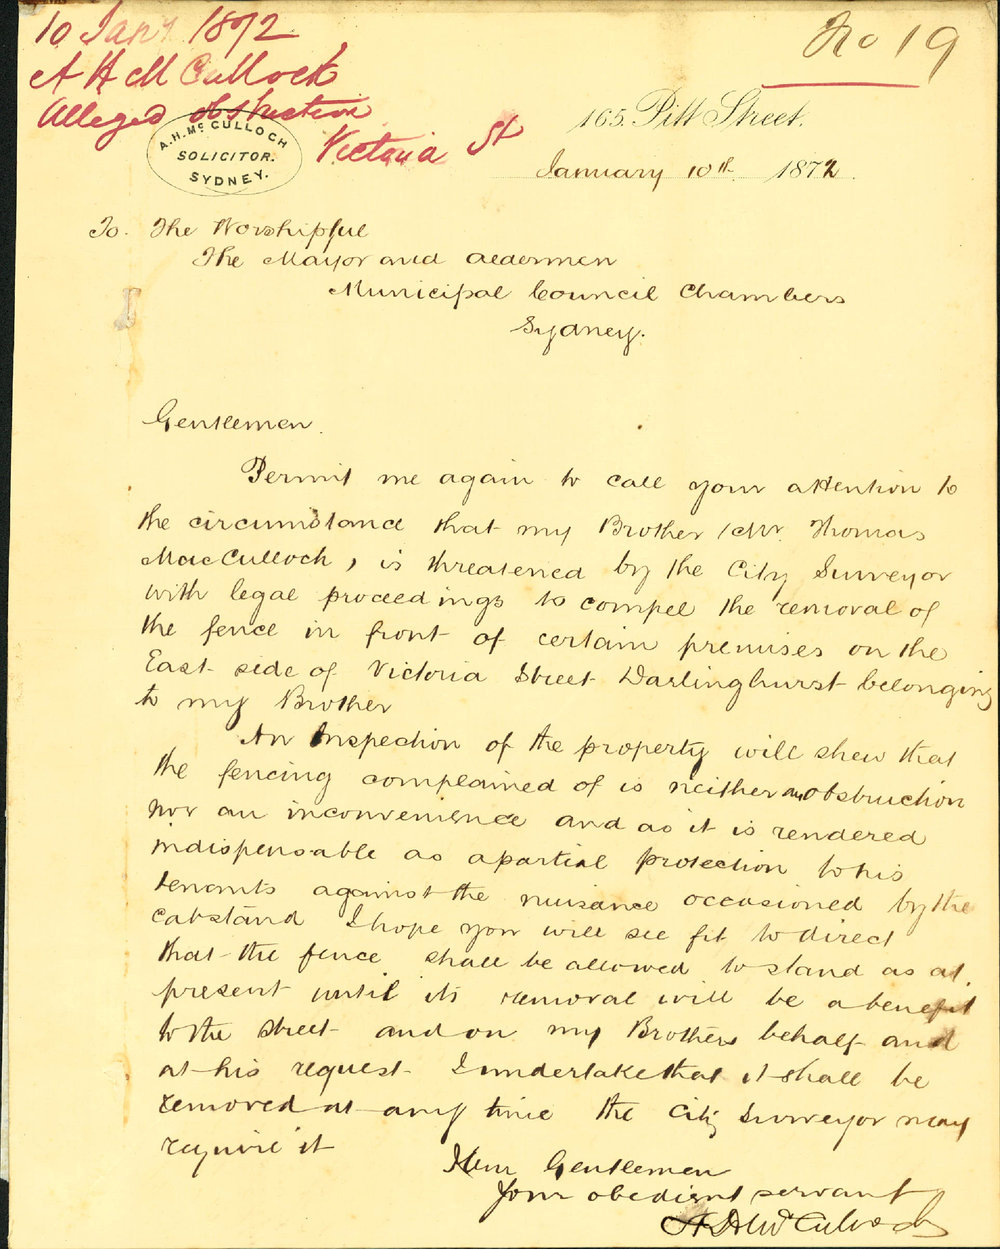 10 Jany 1872
No 19
A H McCulloch
Alleged obstruction
Victoria St
A.H. Mc CULLOCH
SOLICITOR.
SYDNEY.
165. Pitt Street.
January 10th 1872.
To. The Worshipful
The Mayor and Aldermen
Municipal Council Chambers
Sydney.
Gentlemen
Permit me again to call your attention to
the circumstance that my Brother, Mr. Thomas
MacCulloch, is threatened by the City Surveyor
with legal proceedings to compel the removal of
the fence in front of certain premises on the
East side of Victoria Street Darlinghurst belonging
to my Brother
An Inspection of the property will shew that
the fencing complained of is neither an obstruction
nor an inconvenience and as it is rendered
indispensable as a partial protection to his
tenants against the nuisance occasioned by the
cabstand I hope you will see fit to direct
that the fence shall be allowed to stand as at
present until its removal will be a benefit
to the street and on my Brothers behalf and
at his request I undertake that it shall be
removed at any time the City Surveyor may
require it
I am Gentlemen
Your obedient servant
A H McCulloch